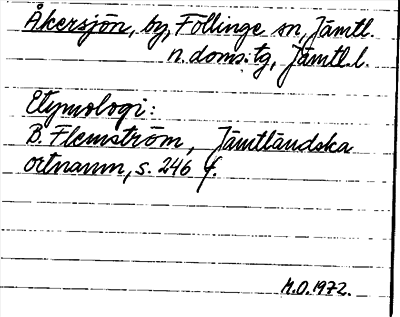 Åkersjön, by, Föllinge sn, Jämtl.
n. doms:tg, Jämtl. l.
Etymologi:
B. Flemström, Jämtländska
ortnamn, s. 246 f.
M.O. 1972.